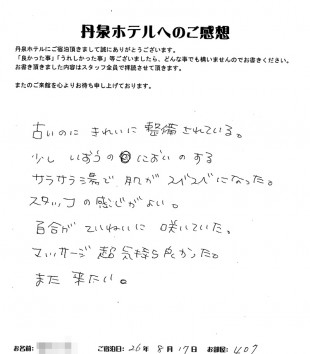 丹泉ホテルへのご感想
丹泉ホテルにご宿泊頂きまして誠にありがとうございます。
「良かった事」「うれしかった事」等ございましたら、どんな事でも構いませんのでお書きください。
お書き頂きました内容はスタッフ全員で拝読させて頂きます。
またのご来館を心よりお待ち申し上げております。
古いのに きれいに 整備されている。
少し いおうの においのする
サラサラ湯で 肌が スベスベになった。
スタッフの感じがよい。
百合が ていねいに 咲いていた。
マッサージ 超 気持ち良かった。
また 来たい。
お名前: ご宿泊日: 26年 8月 17日 お部屋: 407